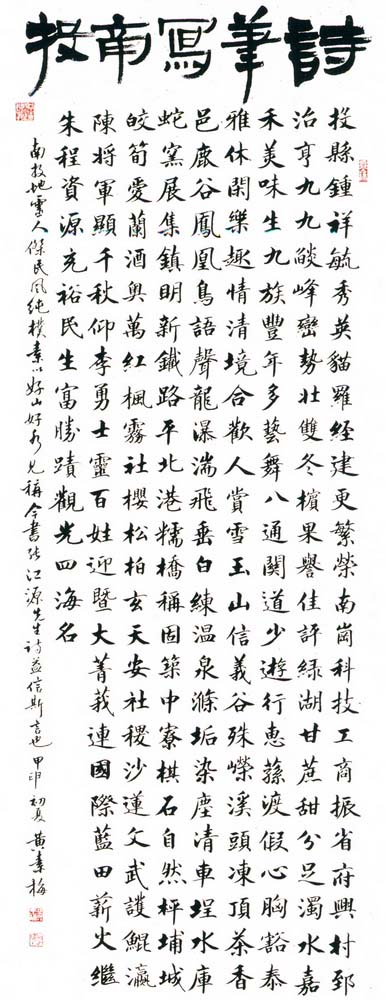 詩筆寫南投
投縣鍾祥毓秀英貓羅經建更繁榮南崗科技工商振省府興村郅
治亨九九餤峰巒勢壯雙冬檳果譽佳評綠湖甘蔗甜分足濁水嘉
禾美味生九族豐年多藝舞八通關道少遊行惠蓀渡假心胸豁泰
雅休閑樂趣情清境合歡人賞雪玉山信義谷殊嶸溪頭凍頂茶香
邑鹿谷鳳凰鳥語聲龍瀑湍飛垂白練溫泉滌垢染塵清車埕水庫
蛇窯展集鎮明新鐵路平北港糯橋稱固築中寮棋石自然枰埔城
皎筍愛蘭酒與萬紅楓霧社櫻松柏玄天安社稷沙蓮文武護鯤瀛
陳將軍顯千秋仰李勇士靈百姓迎暨大菁莪連國際藍田薪火繼
朱程資源充裕民生富勝蹟觀光四海名
南投地靈人傑民風純樸素以好山好水見稱今書張江源先生詩益信斯言也 甲申初夏 黃素梅